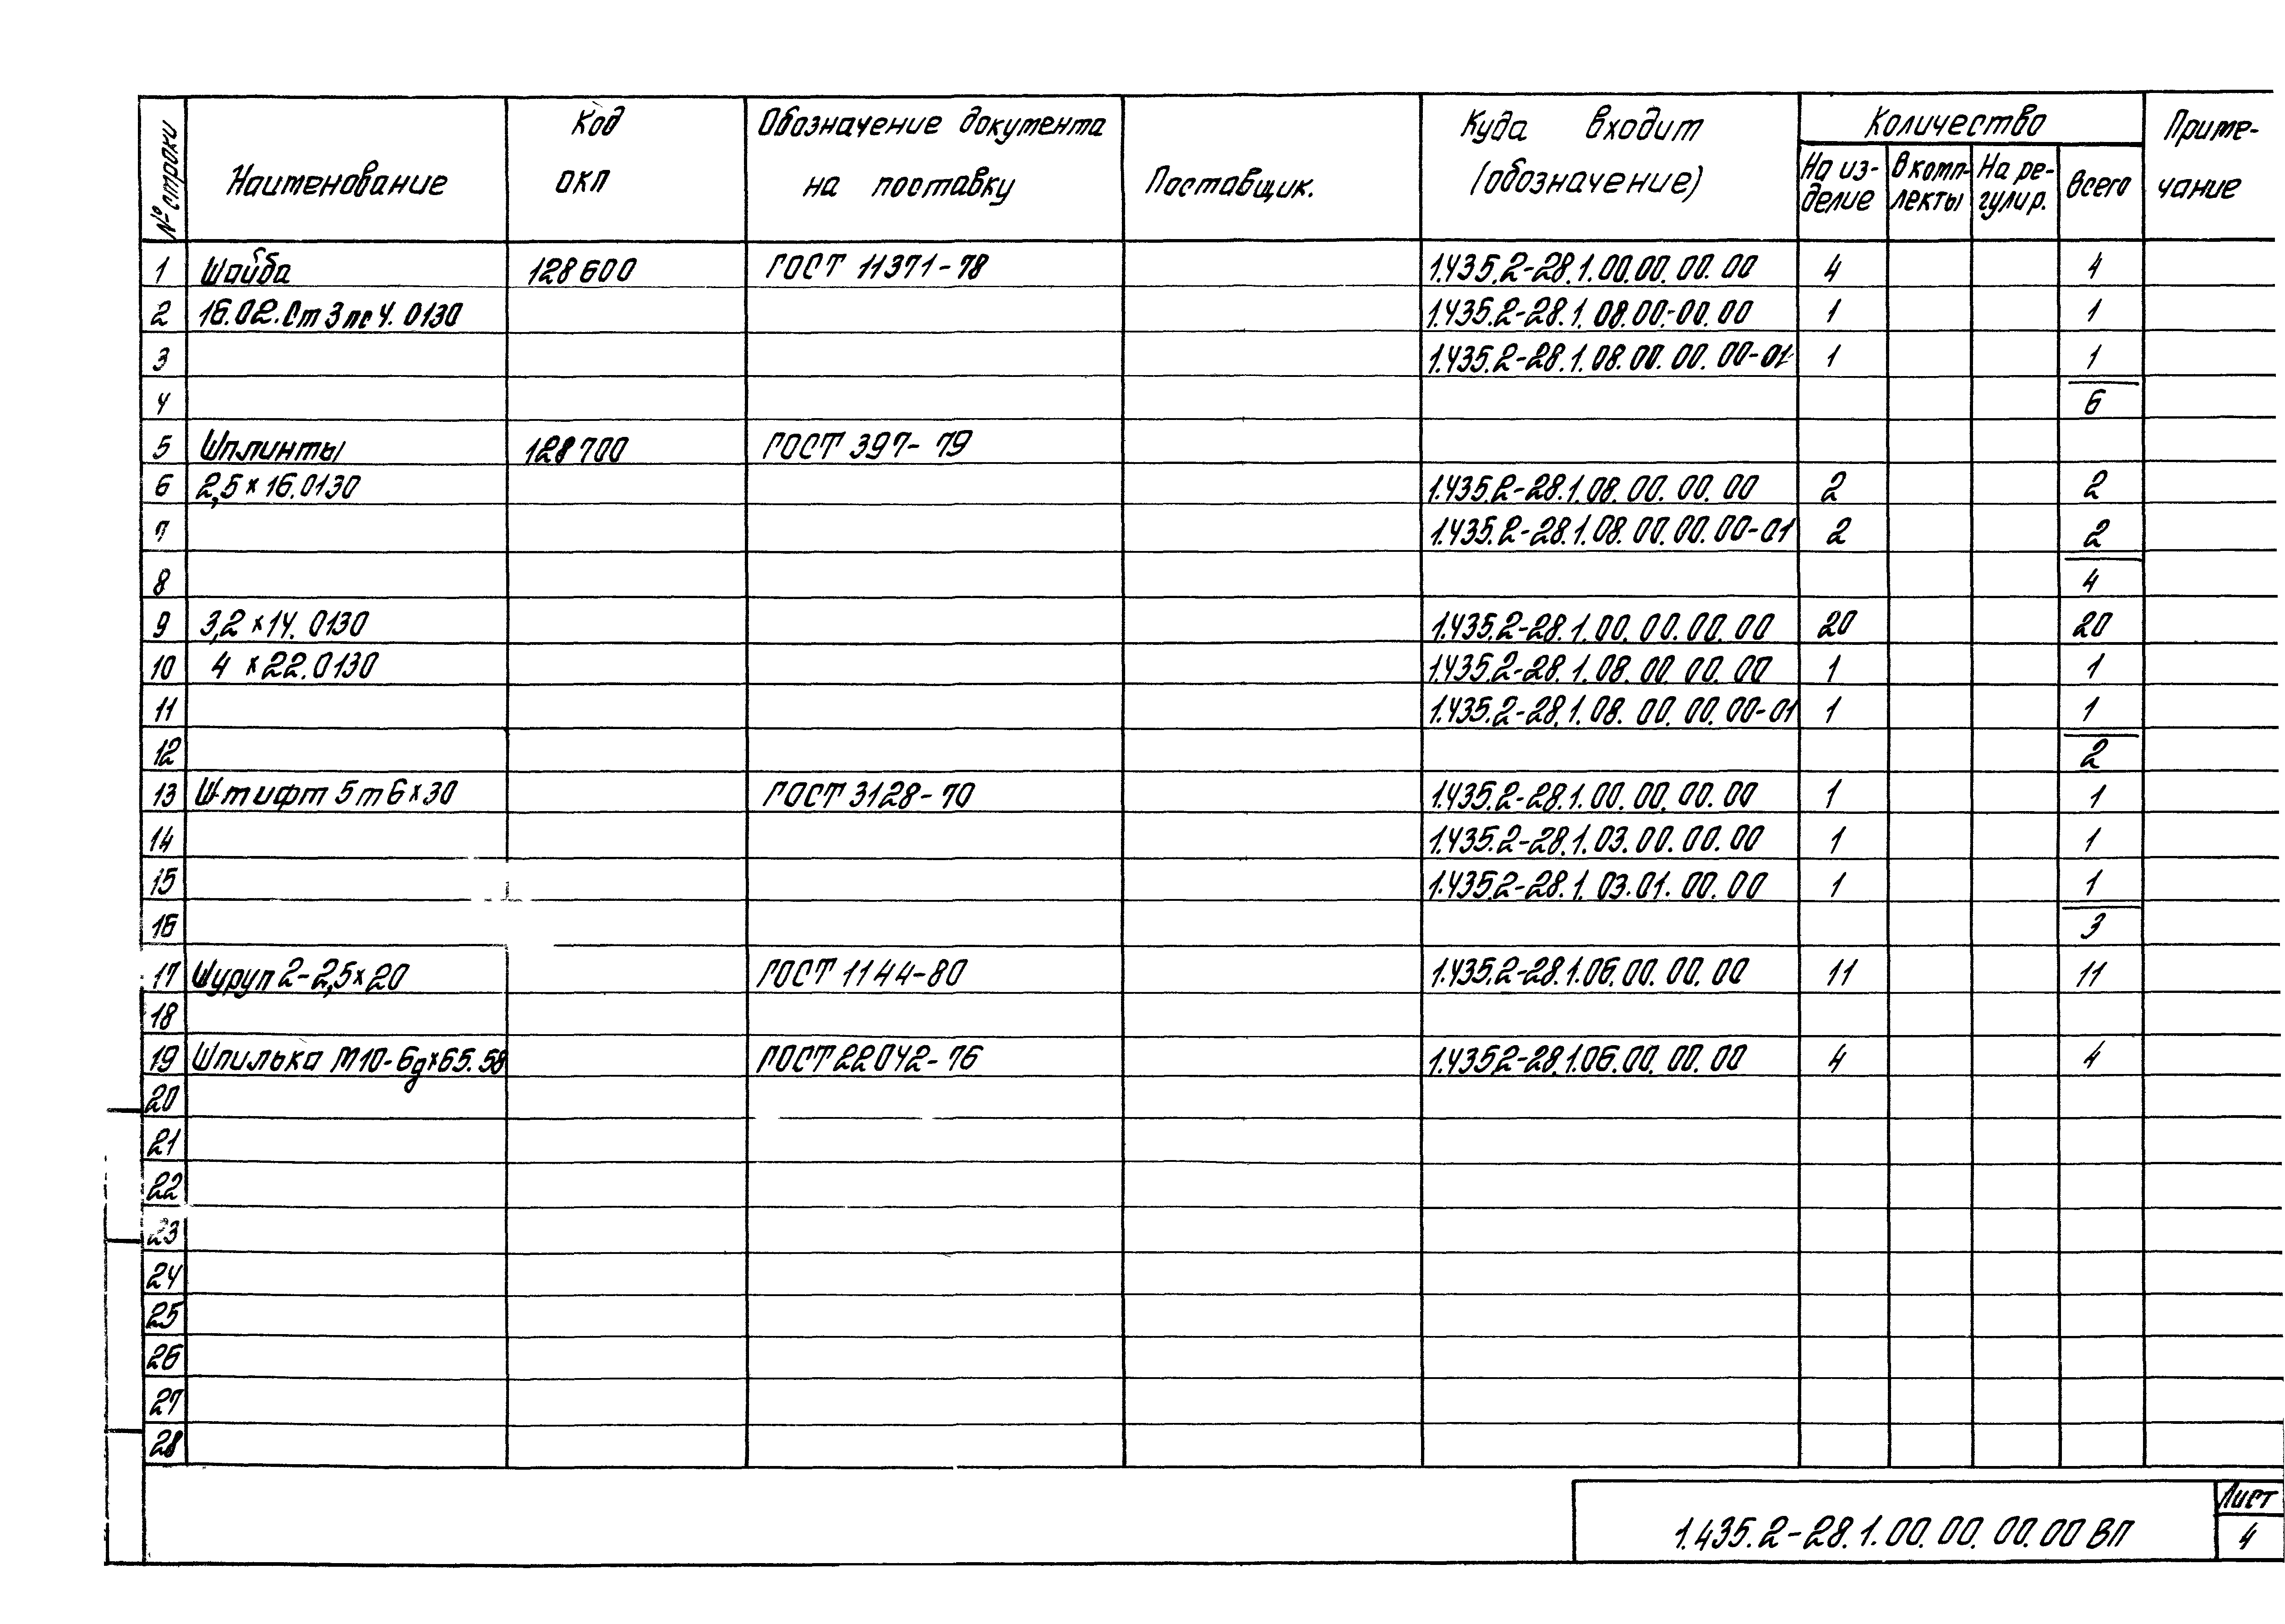 № строки Наименование Код ОКП Обозначение документа на поставку Поставщик. Куда входит (обозначение) Количество На из-делие В комп-лекты На ре-гулир. Всего Приме-чание
1 Шайба 128600 ГОСТ 11371-78 1.435.2-28.1.00.00.00.00 4 4
2 16.02.Ст 3 пс 4. 0130 1.435.2-28.1.08.00.00.00 1 1
3 1.435.2-28.1.08.00.00.00-01 1 1
4 6
5 Шплинты 128700 ГОСТ 397-79
6 2,5×16.0130 1.435.2-28.1.08.00.00.00 2 2
7 1.435.2-28.1.08.00.00.00-01 2 2
8 4
9 3,2×14.0130 1.435.2-28.1.00.00.00.00 20 20
10 4×22.0130 1.435.2-28.1.08.00.00.00 1 1
11 1.435.2-28.1.08.00.00.00-01 1 1
12 2
13 Штифт 5m6×30 ГОСТ 3128-70 1.435.2-28.1.00.00.00.00 1 1
14 1.435.2-28.1.03.00.00.00 1 1
15 1.435.2-28.1.03.01.00.00 1 1
16 3
17 Шуруп 2-2,5×20 ГОСТ 1144-80 1.435.2-28.1.06.00.00.00 11 11
18
19 Шпилька М10-6g×65.58 ГОСТ 22042-76 1.435.2-28.1.06.00.00.00 4 4
20
21
22
23
24
25
26
27
28
1.435.2-28.1.00.00.00.00 ВП
Лист
4